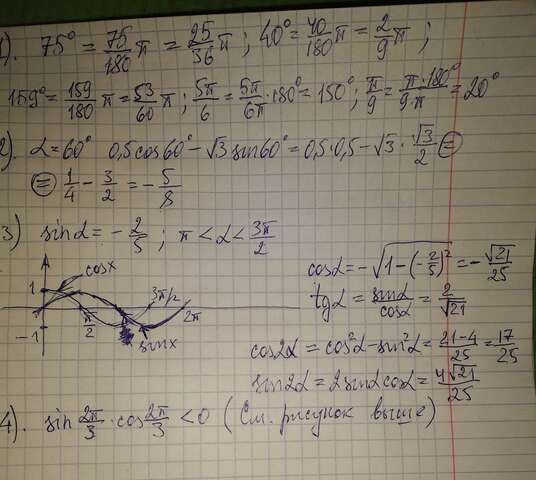 1). 75° = 75/180 π = 25/36 π ; 40° = 40/180 π = 2/9 π ;
159° = 159/180 π = 53/60 π ; 5π/6 = 5π/6π · 180° = 150° ; π/9 = π·180°/9·π = 20°
2). α = 60° 0,5 cos 60° − √3 sin 60° = 0,5·0,5 − √3 · √3/2 =
= 1/4 − 3/2 = − 5/8
3) sin α = − 2/5 ; π < α < 3π/2
cos x
1
π/2
3π/2
2π
−1
sin x
cos α = − √(1 − (−2/5)²) = − √21/25
tg α = sin α/cos α = 2/√21
cos 2α = cos²α − sin²α = 21−4/25 = 17/25
sin 2α = 2 sin α cos α = 4√21/25
4). sin 2π/3 · cos 2π/3 < 0 (См. рисунок выше)